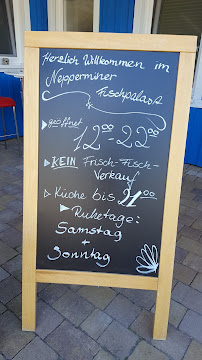 Herzlich Willkommen im
Nepperminer
Fischpalast
geöffnet
12⁰⁰-22⁰⁰
KEIN Frisch-Fisch-
Verkauf
Küche bis 21⁰⁰
Ruhetage:
Samstag
+
Sonntag